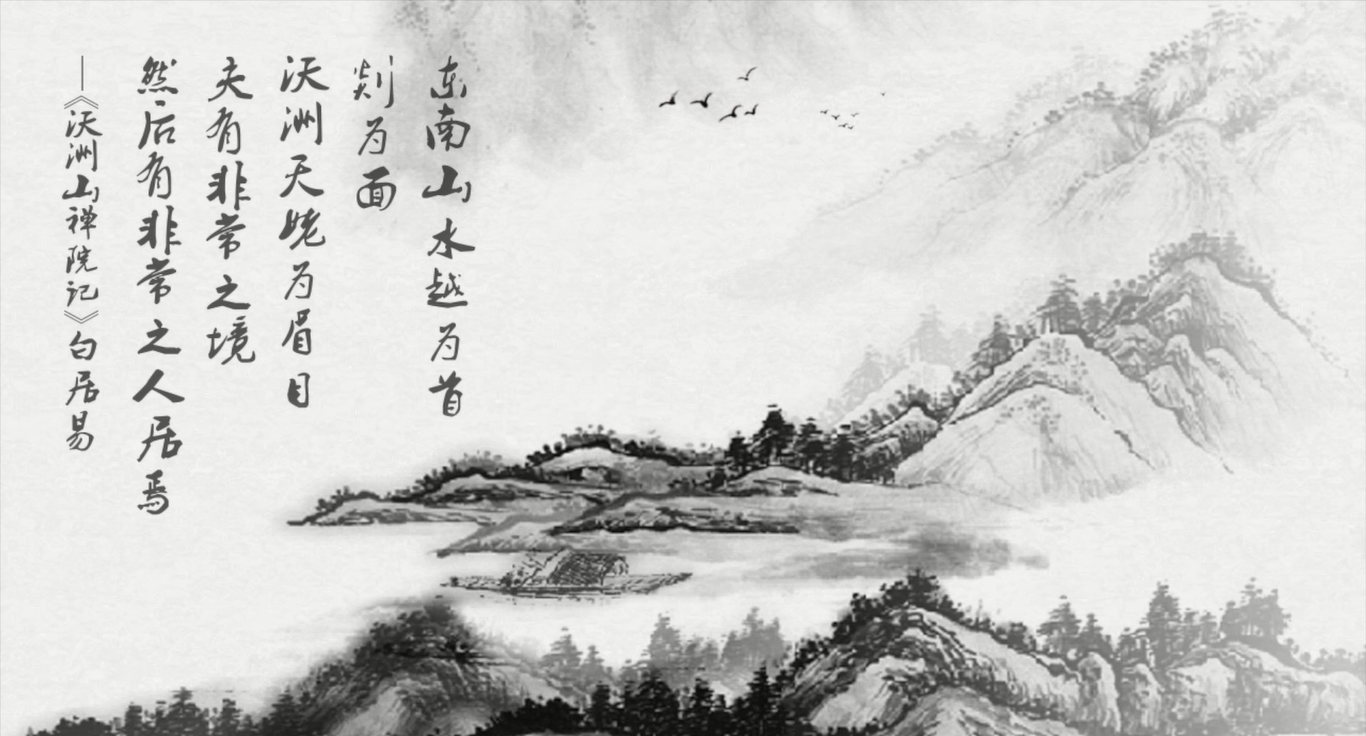 东南山水越为首
剡为面
沃洲天姥为眉目
夫有非常之境
然后有非常之人居焉
—《沃洲山禅院记》白居易